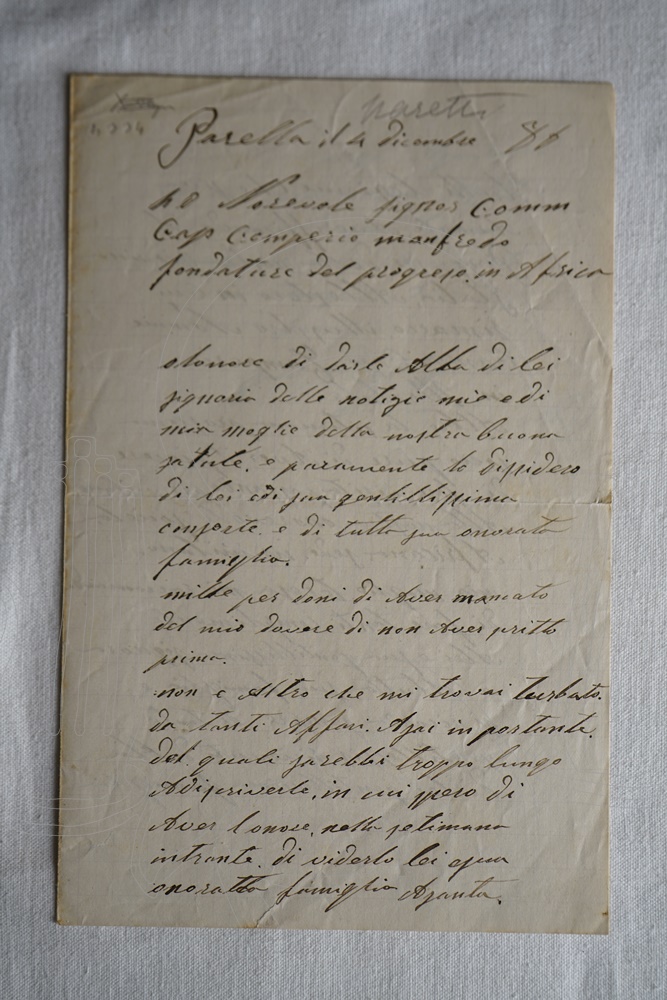 naretti
4 224
Parella il 4 dicembre 86
Ho Norevole signor Comm
Cap Comperio manfredo
fondature del progreso in Africa
olonore di darle Alla di lei
signoria delle notizie mie e di
mia moglie della nostra buona
salute. e paramente lo dissidero
di lei e di sua gentillissima
consorte. e di tutta sua onorata
famiglia.
mille per doni di Aver mancato
del mio dovere di non Aver scritto
prima.
non e Altro che mi trovai turbato.
da tanti Affari. Asai in portante.
del quali sarebbi troppo lungo
Adiscriverle, in cui spero di
Aver lonore, nella setimana
intrante. di viderlo lei esua
onoratta famiglia Asanta.